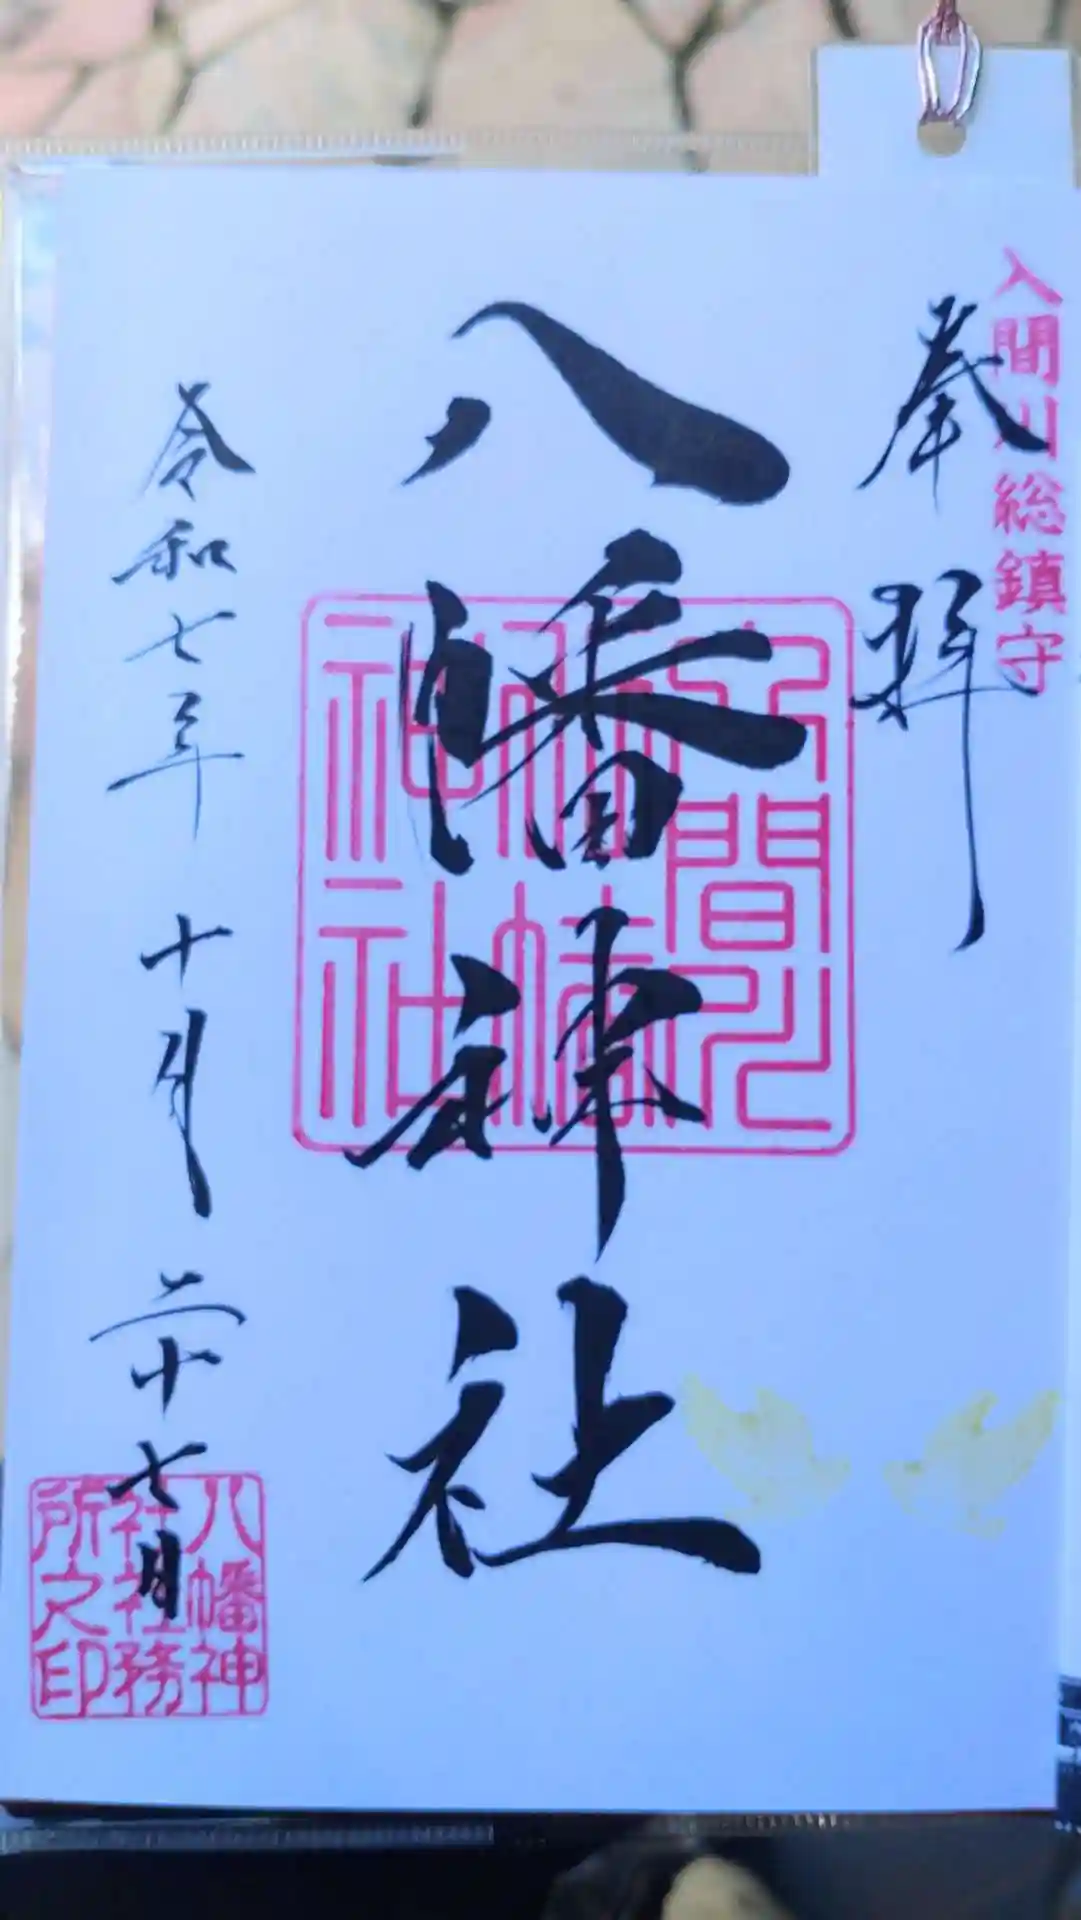 入間川総鎮守
奉拝
八幡神社
入間川
八幡
神社
令和七年十月二十七日
八幡神
社社務
所之印